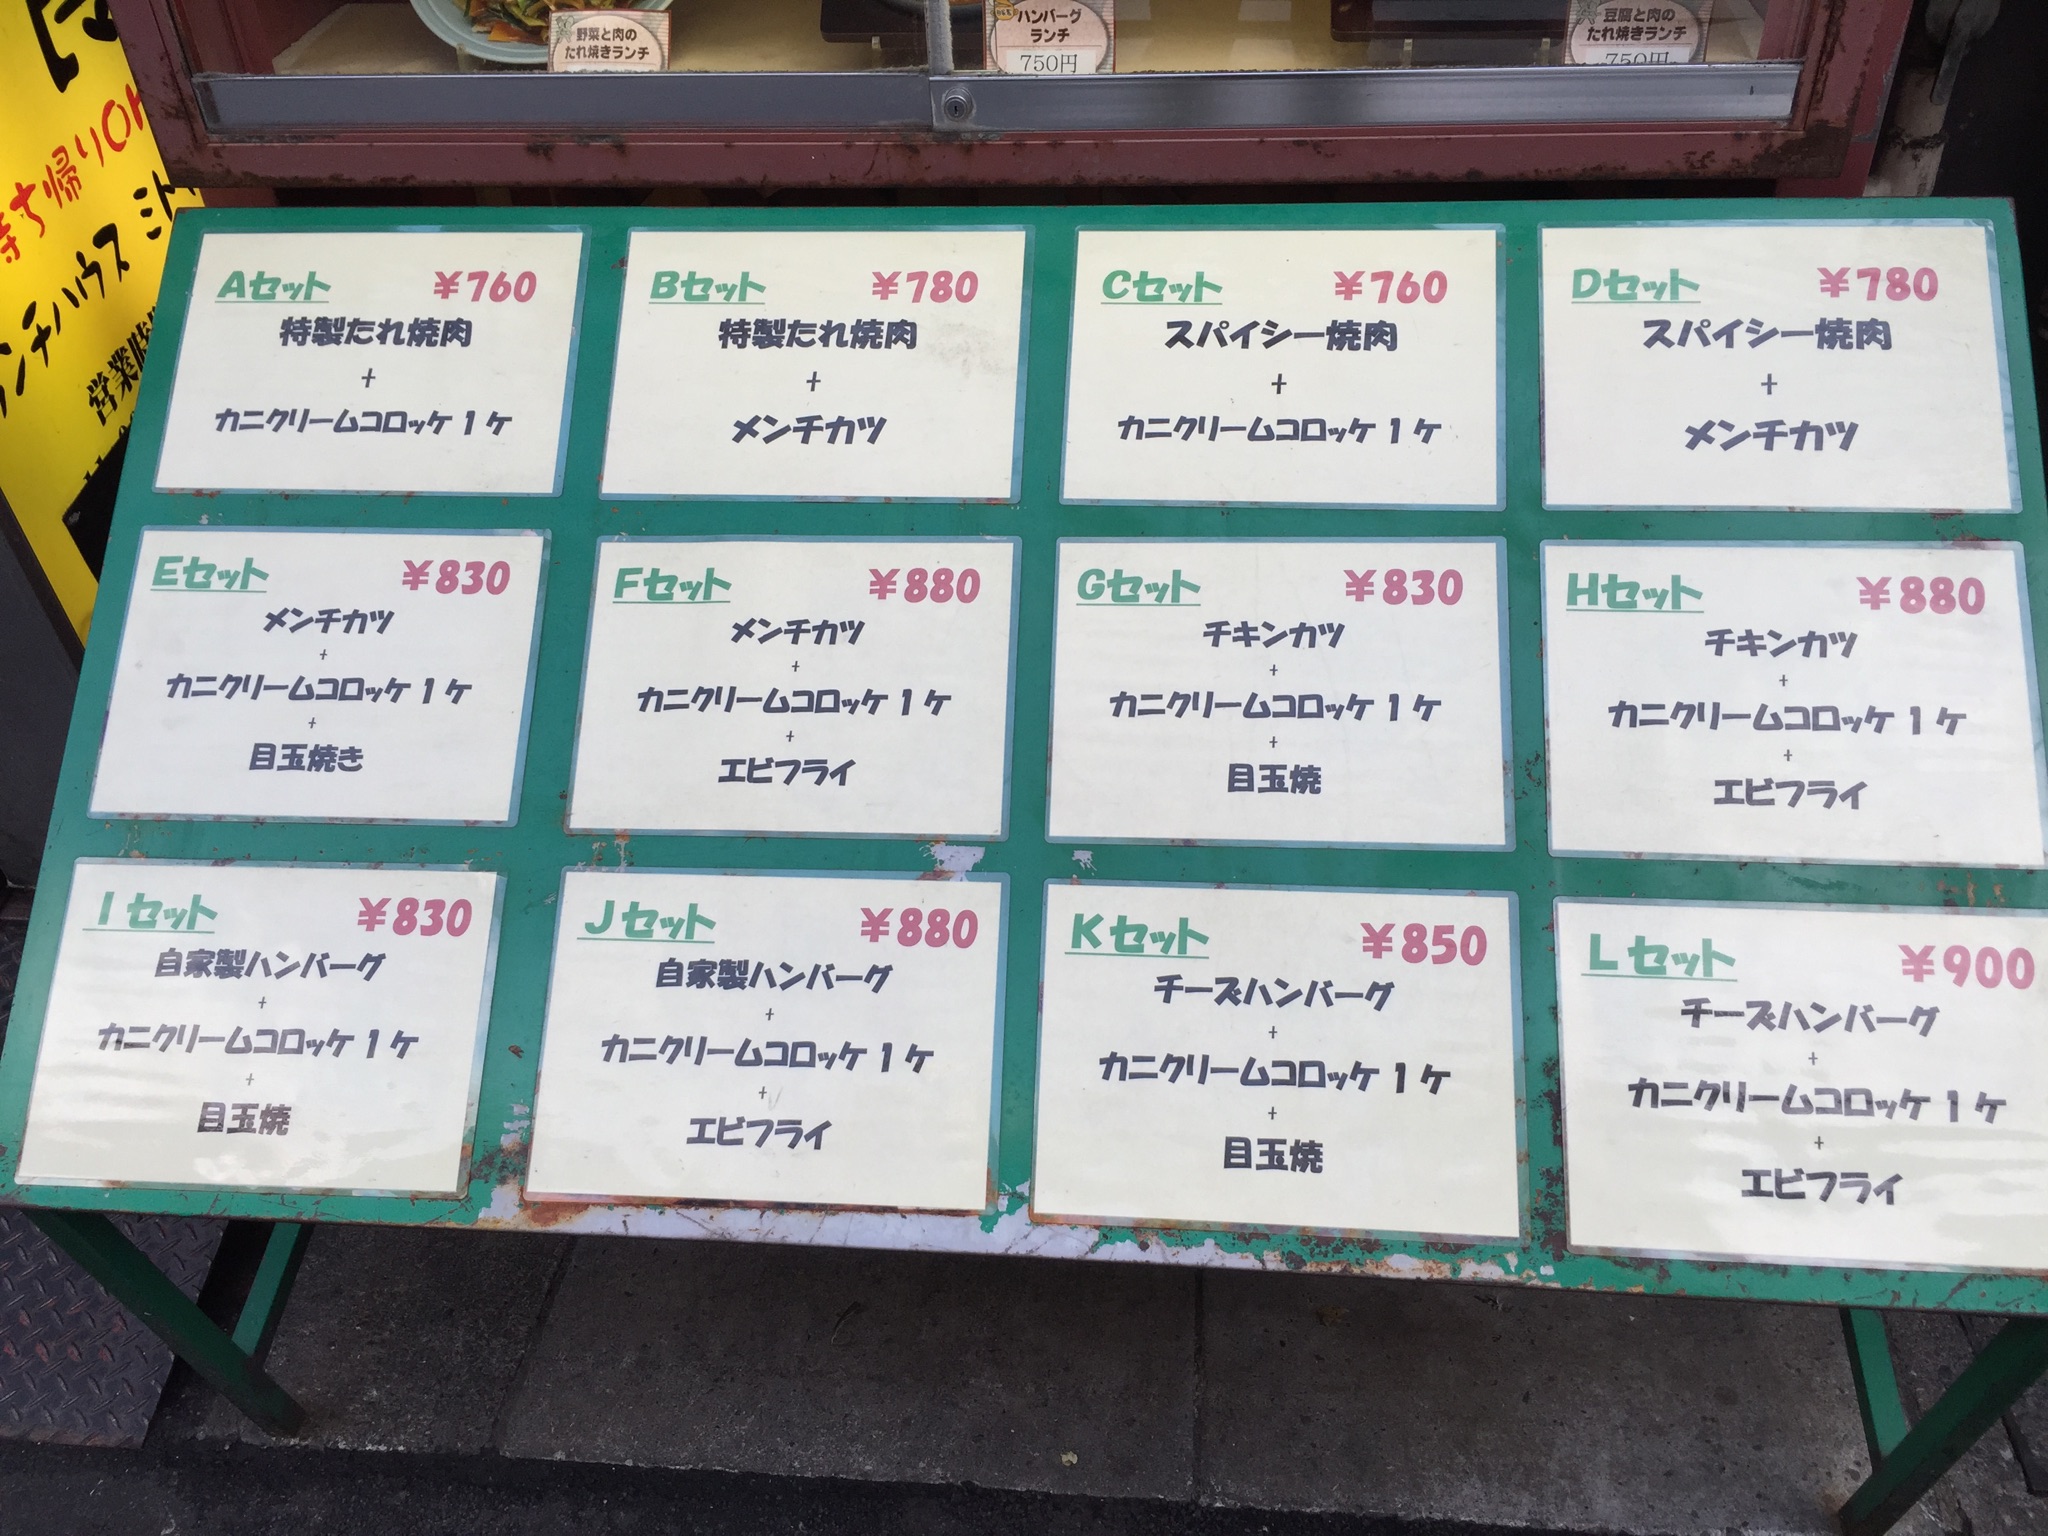 野菜と肉の
たれ焼きランチ
ハンバーグ
ランチ
750円
豆腐と肉の
たれ焼きランチ
750円
持ち帰りOK
ランチハウス ミト
営業
Aセット ¥760
特製たれ焼肉
+
カニクリームコロッケ1ケ
Bセット ¥780
特製たれ焼肉
+
メンチカツ
Cセット ¥760
スパイシー焼肉
+
カニクリームコロッケ1ケ
Dセット ¥780
スパイシー焼肉
+
メンチカツ
Eセット ¥830
メンチカツ
+
カニクリームコロッケ1ケ
+
目玉焼き
Fセット ¥880
メンチカツ
+
カニクリームコロッケ1ケ
+
エビフライ
Gセット ¥830
チキンカツ
+
カニクリームコロッケ1ケ
+
目玉焼
Hセット ¥880
チキンカツ
+
カニクリームコロッケ1ケ
+
エビフライ
Iセット ¥830
自家製ハンバーグ
+
カニクリームコロッケ1ケ
+
目玉焼
Jセット ¥880
自家製ハンバーグ
+
カニクリームコロッケ1ケ
+
エビフライ
Kセット ¥850
チーズハンバーグ
+
カニクリームコロッケ1ケ
+
目玉焼
Lセット ¥900
チーズハンバーグ
+
カニクリームコロッケ1ケ
+
エビフライ